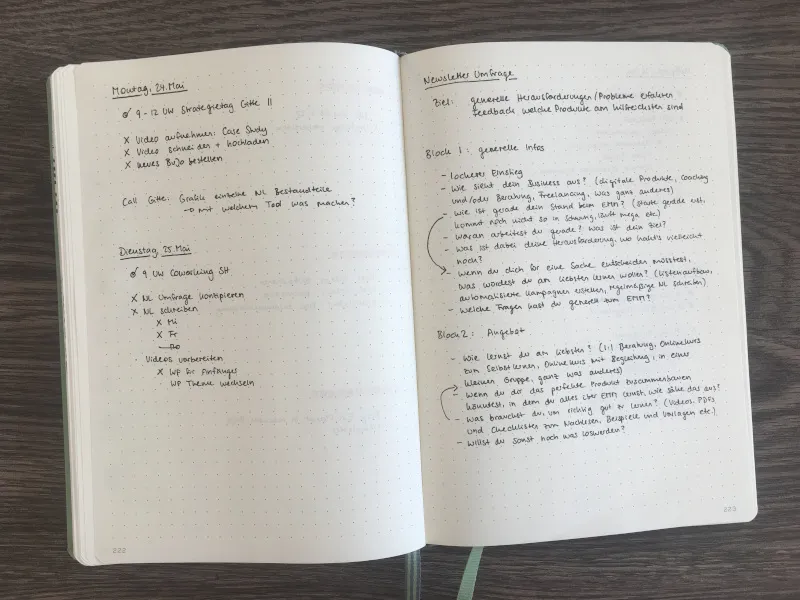 Montag, 24. Mai
9-12 UW Strategietag Gitte II
X Video aufnehmen: Case Study
X Video schneiden + hochladen
X neues BuJo bestellen
Call Gitte: Grafik einzelne NL Bestandteile
→ mit welchem Tool was machen?
Dienstag, 25. Mai
9 UW Coworking SH
X NL Umfrage konzipieren
X NL schreiben
X Mi
X Fr
Do
· Videos vorbereiten
X WP für Anfänger
WP Theme wechseln
222
Newsletter Umfrage
Ziel: generelle Herausforderungen/Probleme erfahren
feedback welche Produkte am hilfreichsten sind
Block 1: generelle Infos
- lockerer Einstieg
- Wie sieht dein Business aus? (digitale Produkte, Coaching
und/oder Beratung, Freelancing, was ganz anderes)
- Wie ist gerade dein Stand beim EMM? (starte gerade erst,
kommt noch nicht so in Schwung, läuft mega etc.)
- Woran arbeitest du gerade? Was ist dein Ziel?
- Was ist dabei deine Herausforderung, wo hakt's vielleicht
noch?
- Wenn du dich für eine Sache entscheiden müsstest,
was würdest du am liebsten lernen wollen? (Listenaufbau,
automatisierte Kampagnen erstellen, regelmäßige NL schreiben)
- Welche Fragen hast du generell zum EMM?
Block 2: Angebot
- Wie lernst du am liebsten? (1:1 Beratung, Onlinekurs
zum Selbstlernen, Onlinekurs mit Begleitung, in einer
kleinen Gruppe, ganz was anderes)
- Wenn du dir das perfekte Produkt zusammenbauen
könntest, in dem du alles über EMM lernst, wie sähe das aus?
- Was brauchst du, um richtig gut zu lernen? (Videos, PDFs
und Checklisten zum Nachlesen, Beispiele und Vorlagen etc.)
- Willst du sonst noch was loswerden?
223